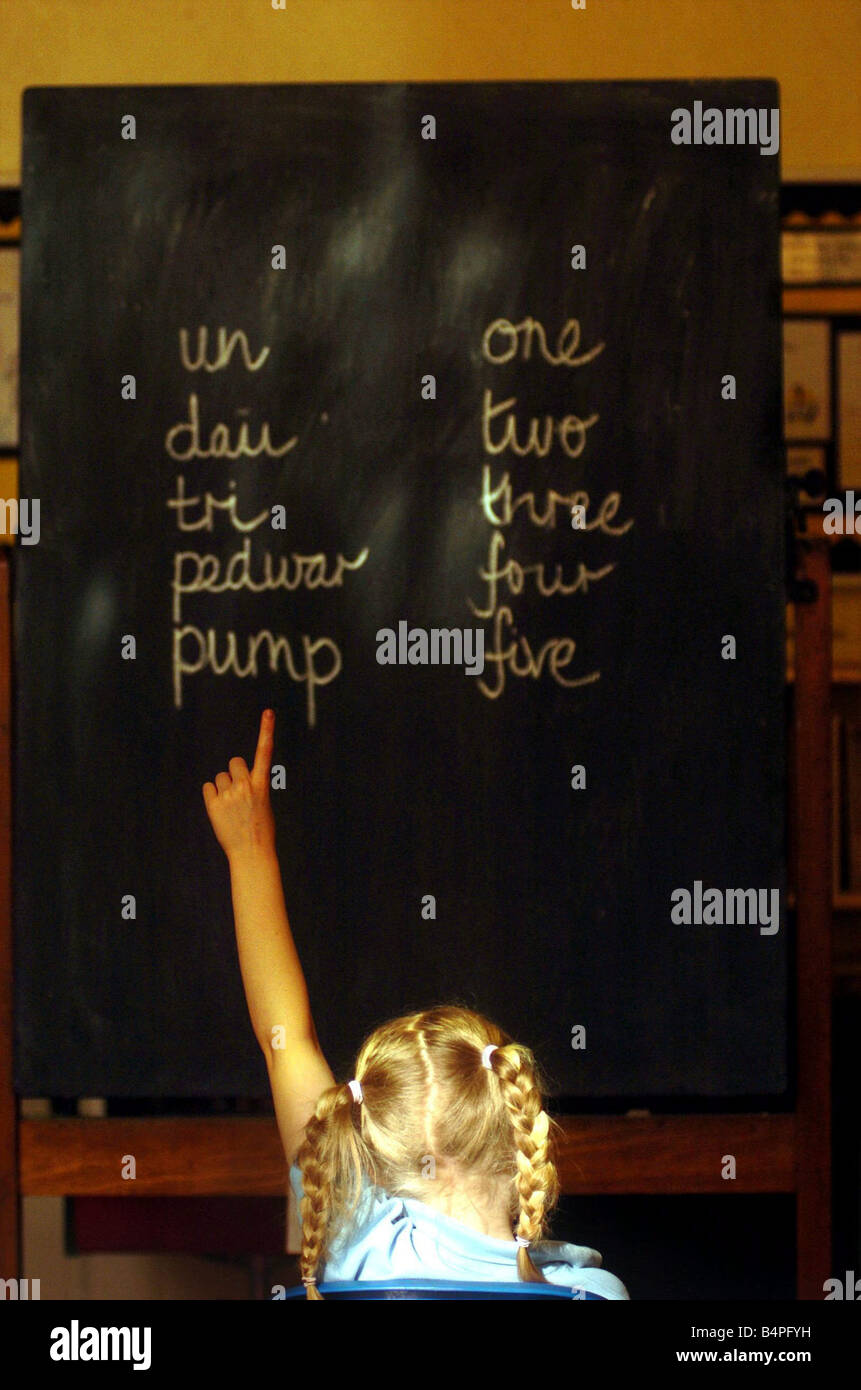 un one
dau two
tri three
pedwar four
pump five
alamy
alamy
alamy
alamy
Image ID: B4PFYH
www.alamy.com